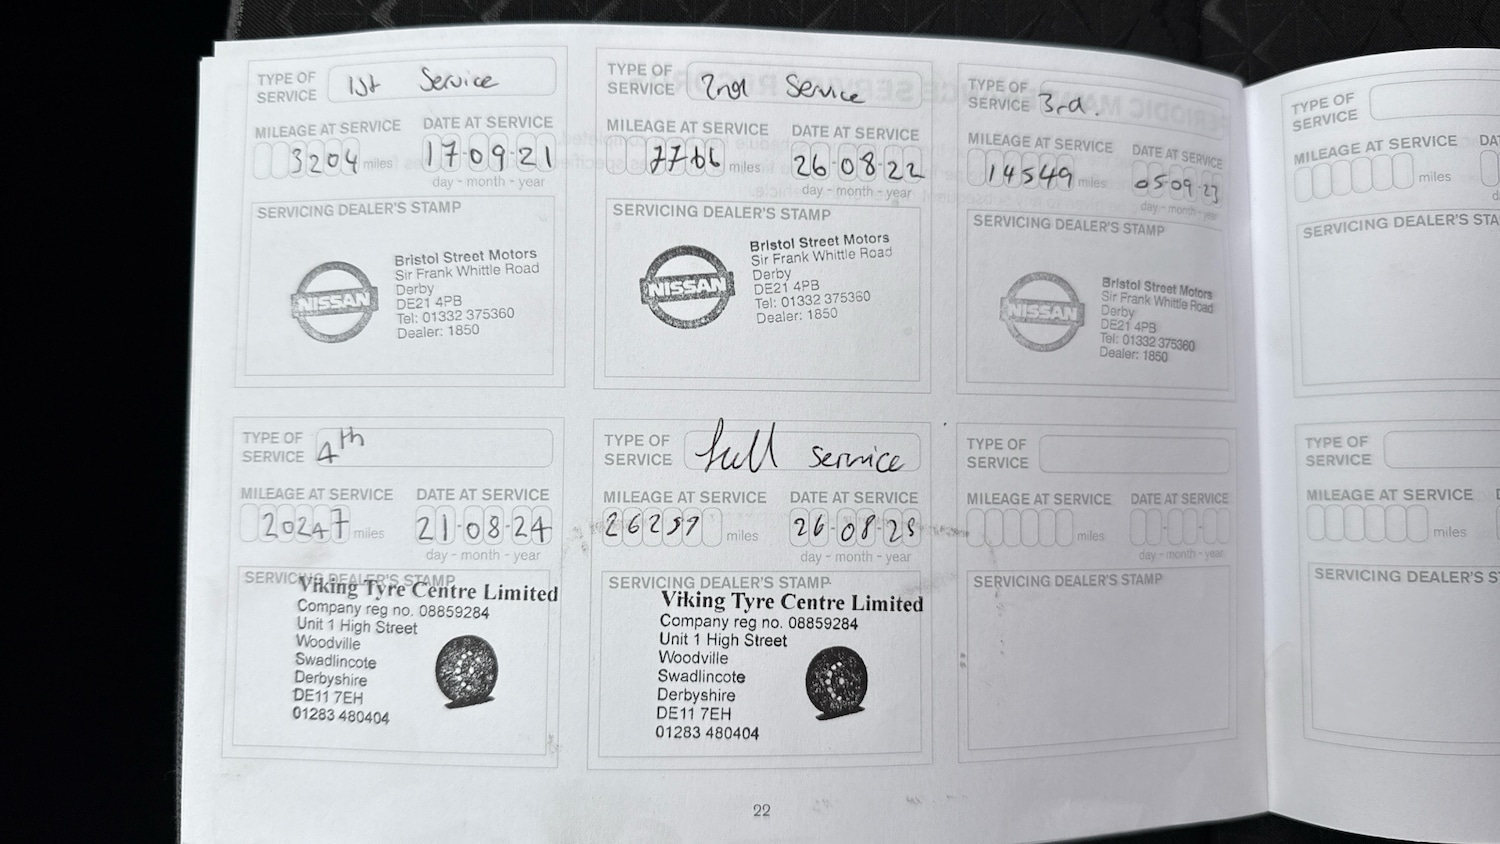 TYPE OF SERVICE 1st Service
MILEAGE AT SERVICE DATE AT SERVICE
3204 miles 17-09-21
day - month - year
SERVICING DEALER'S STAMP
NISSAN
Bristol Street Motors
Sir Frank Whittle Road
Derby
DE21 4PB
Tel: 01332 375360
Dealer: 1850
TYPE OF SERVICE 2nd Service
MILEAGE AT SERVICE DATE AT SERVICE
7766 miles 26-08-22
day - month - year
SERVICING DEALER'S STAMP
NISSAN
Bristol Street Motors
Sir Frank Whittle Road
Derby
DE21 4PB
Tel: 01332 375360
Dealer: 1850
TYPE OF SERVICE 3rd.
MILEAGE AT SERVICE DATE AT SERVICE
14549 miles 05-09-23
day - month - year
SERVICING DEALER'S STAMP
NISSAN
Bristol Street Motors
Sir Frank Whittle Road
Derby
DE21 4PB
Tel: 01332 375360
Dealer: 1850
TYPE OF SERVICE 4th
MILEAGE AT SERVICE DATE AT SERVICE
20247 miles 21-08-24
day - month - year
SERVICING DEALER'S STAMP
Viking Tyre Centre Limited
Company reg no. 08859284
Unit 1 High Street
Woodville
Swadlincote
Derbyshire
DE11 7EH
01283 480404
TYPE OF SERVICE full service
MILEAGE AT SERVICE DATE AT SERVICE
miles 26-08-25
day - month - year
SERVICING DEALER'S STAMP
Viking Tyre Centre Limited
Company reg no. 08859284
Unit 1 High Street
Woodville
Swadlincote
Derbyshire
DE11 7EH
01283 480404
TYPE OF SERVICE
MILEAGE AT SERVICE DATE AT SERVICE
miles
day - month - year
SERVICING DEALER'S STAMP
22
TYPE OF SERVICE
MILEAGE AT SERVICE
miles
SERVICING DEALER'S STA
TYPE OF SERVICE
MILEAGE AT SERVICE
miles
SERVICING DEALER'S S